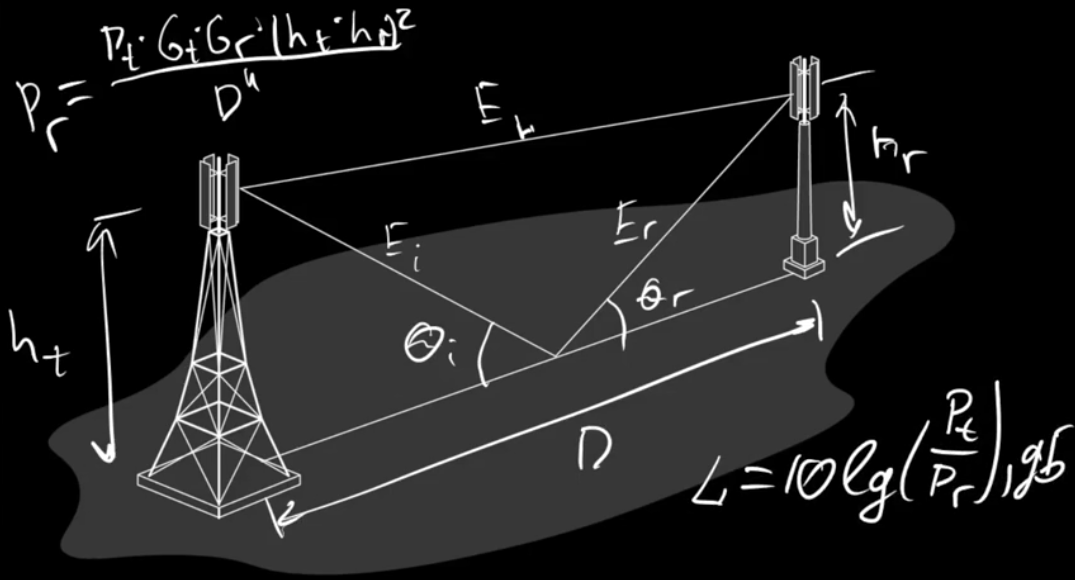 Pr = Pt · Gt · Gr · (ht · hr)² / D⁴
hr
Ei
Er
θr
θi
ht
D
L = 10 lg (Pt / Pr), дБ